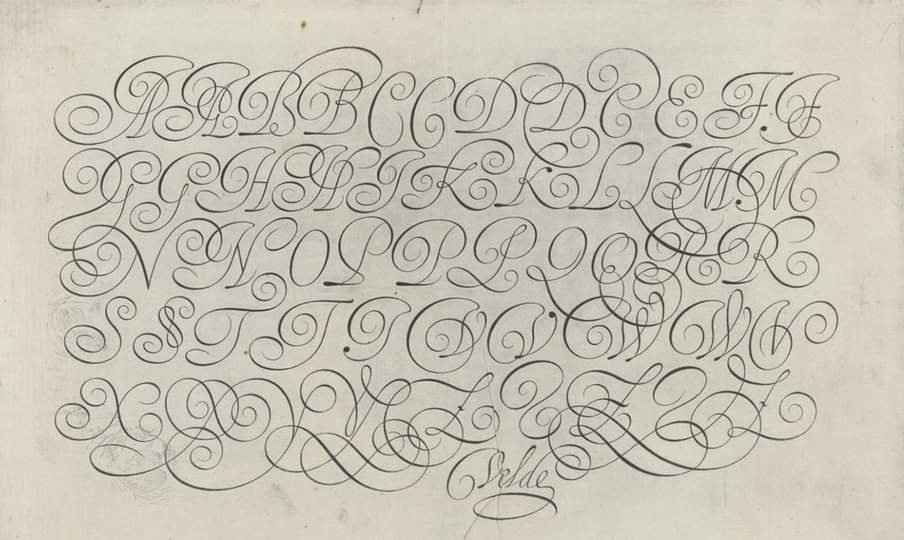 A A B B C C D D E E F F
G G H H I K K L L M M
N N O P P P Q Q R R
S S T T T V V W W
X X Y Z Z Z Z
Velde